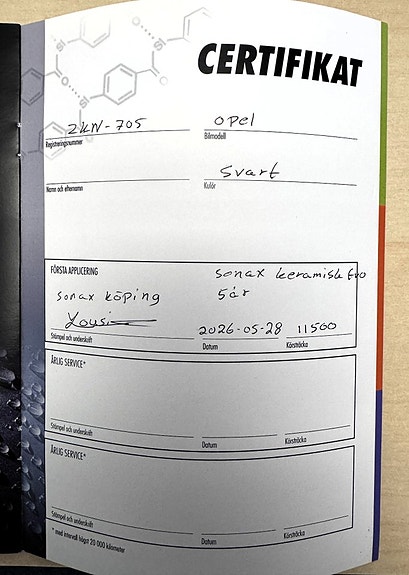 CERTIFIKAT
ZKW-705
Opel
Registreringsnummer
Bilmodell
Svart
Namn och efternamn
Kulör
FÖRSTA APPLICERING
sonax keramisk Evo
sonax köping
5år
Yousi
2026-05-28
11500
Stämpel och underskrift
Datum
Körsträcka
ÅRLIG SERVICE*
Stämpel och underskrift
Datum
Körsträcka
ÅRLIG SERVICE*
Stämpel och underskrift
Datum
Körsträcka
* med intervall högst 20 000 kilometer